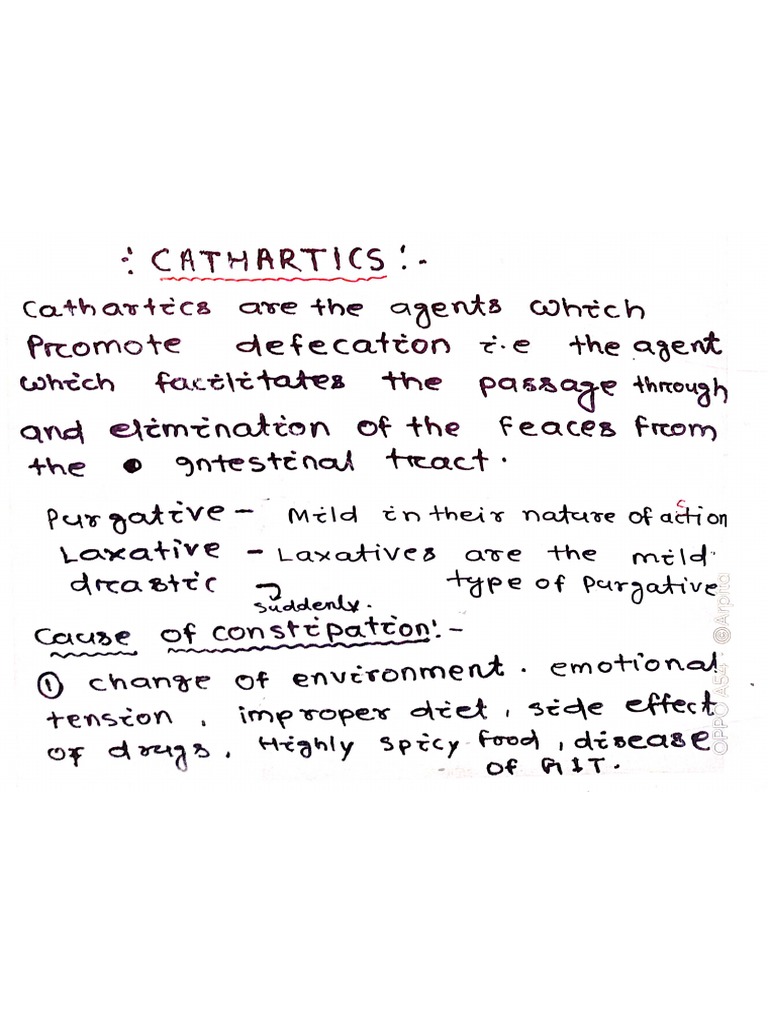 : CATHARTICS :-
Cathartics are the agents which
Promote defecation i.e the agent
which facilitates the passage through
and elimination of the feaces from
the intestinal tract.
Purgative - Mild in their nature of action
Laxative - Laxatives are the mild
drastic → suddenly. type of Purgative
Cause of constipation:-
① change of environment. emotional
tension, improper diet, side effect
of drugs, Highly spicy food, disease
of GIT.
OPPO A54 · @Arpita